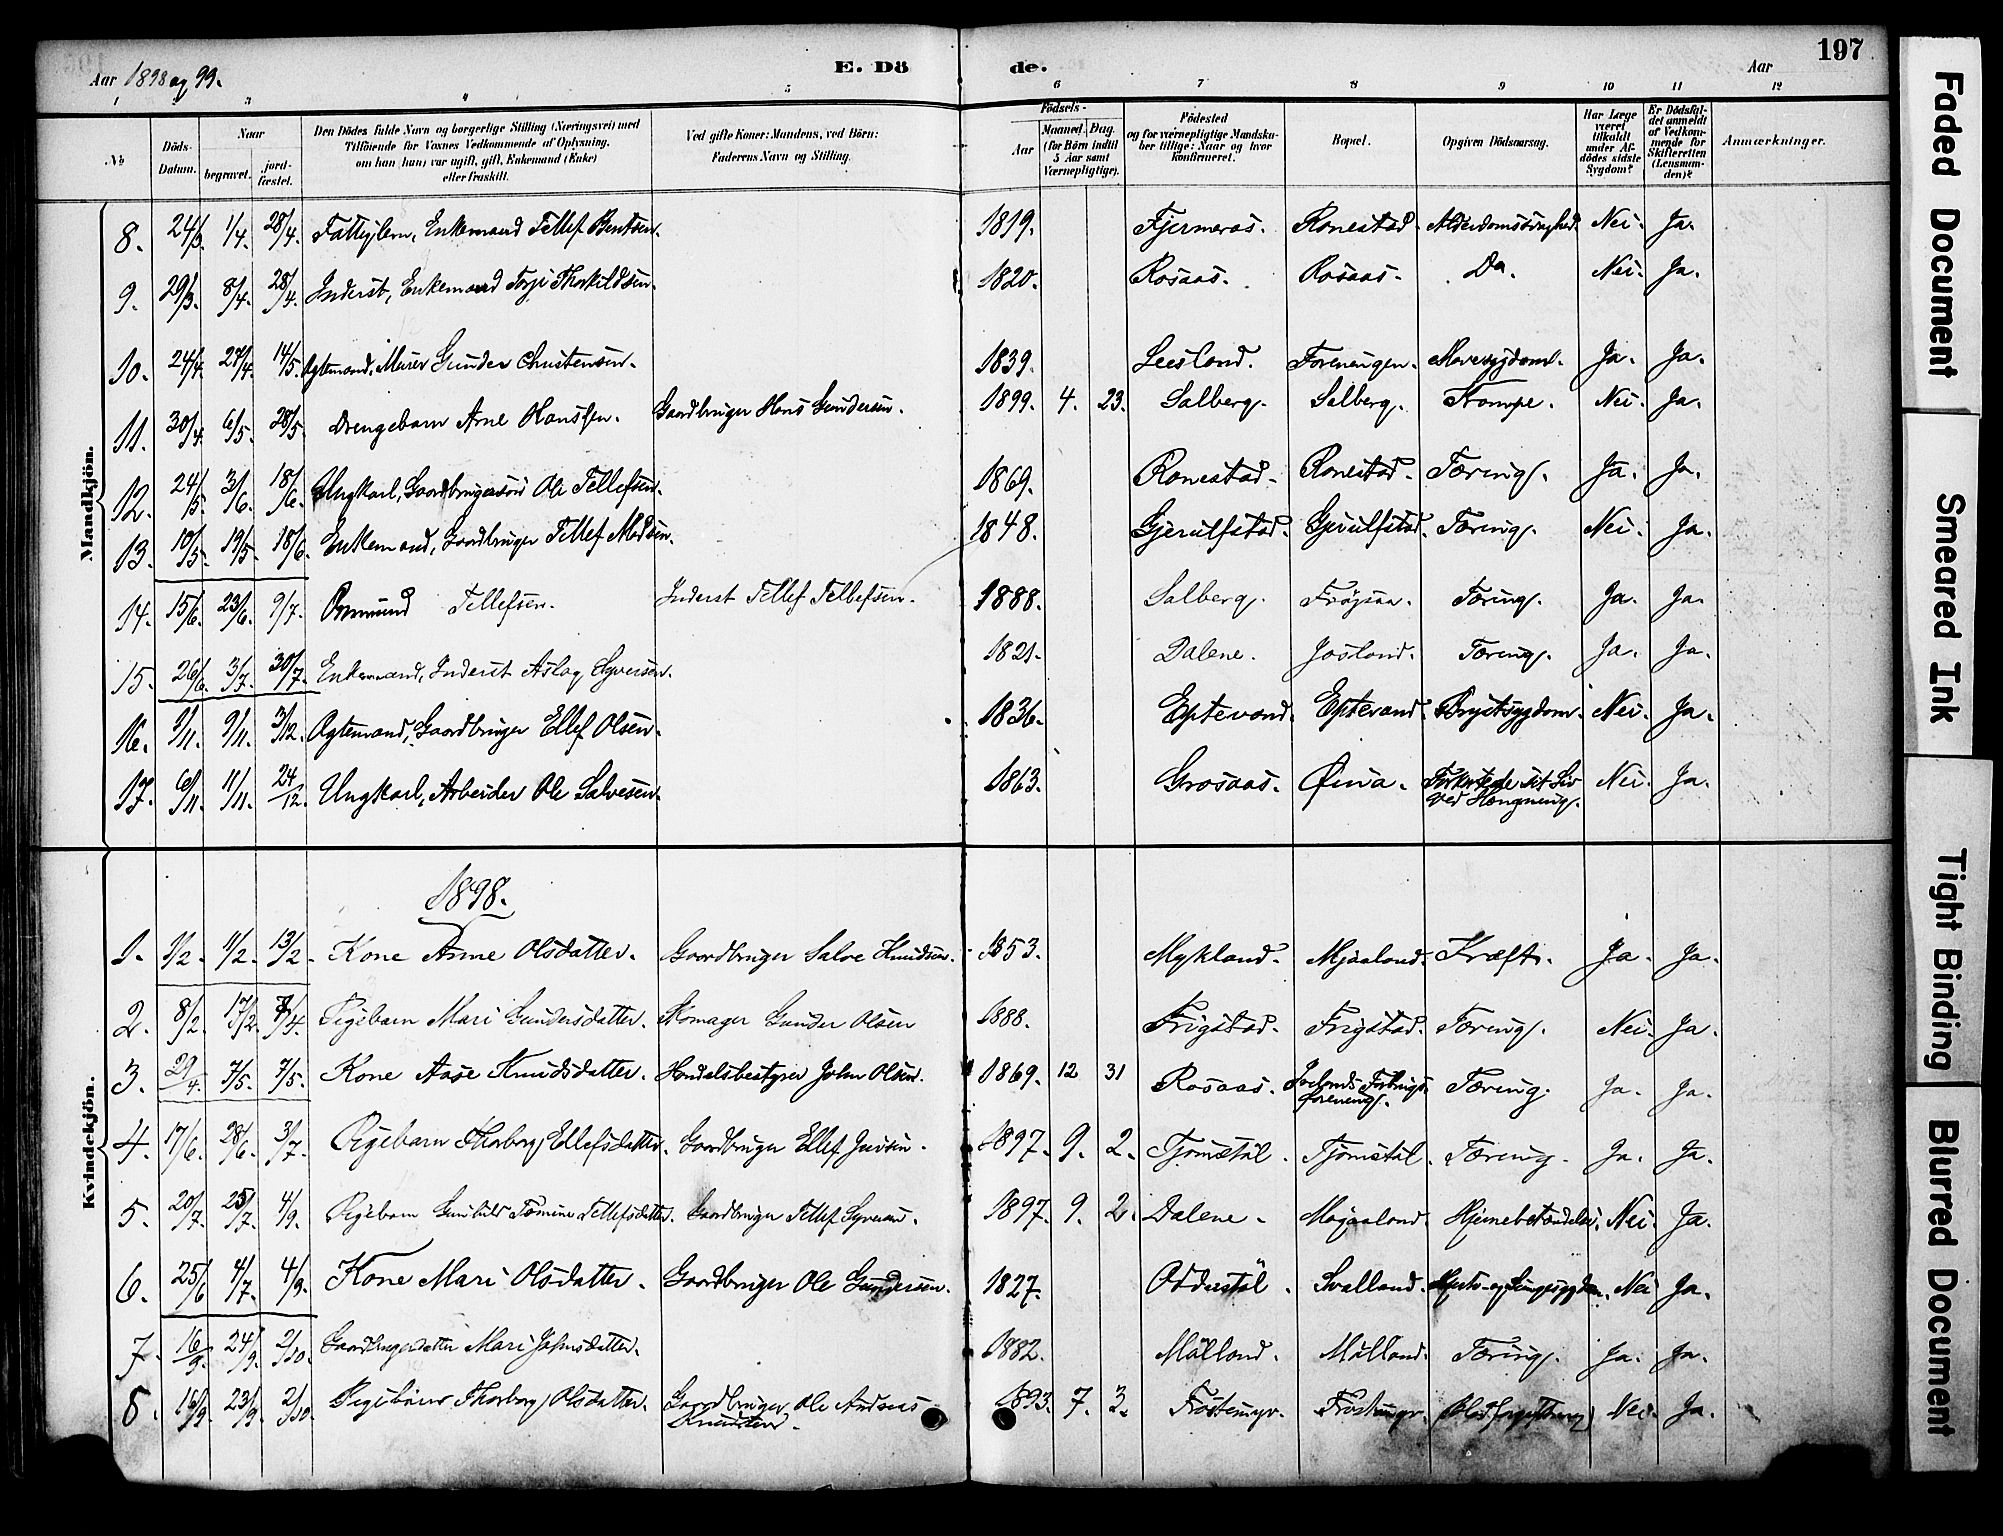 Aar 1898 og 99. E. Dö de. Aar 197
1 2 3 4 5 6 7 8 9 10 11 12
№ Döds-Datum. Naar begravet. jord-fæstet. Den Dödes fulde Navn og borgerlige Stilling (Næringsvei) med Tilföiende for Voxnes Vedkommende af Oplysning, om han (hun) var ugift, gift, Enkemand (Enke) eller fraskilt. Ved gifte Koner: Mandens, ved Börn: Faderens Navn og Stilling. Födsels- Aar Maaned. Dag. (for Börn indtil 5 Aar samt Værnepligtige). Födested og for værnepligtige Mandska-ber tillige: Naar og hvor konfirmeret. Bopæl. Opgiven Dödsaarsag. Har Læge været tilkaldt under Af-dödes sidste Sygdom? Er Dödsfal-det anmeldt af Vedkom-mende for Skifteretten (Lensman-den)? Anmærkninger.
Mandkjön.
8. 24/3. 1/4. 28/4. Fattiglem, Enkemand Tellef Bentsen. 1819. Fjermeros. Ronestad. Alderdomssvaghed. Nei. Ja.
9. 29/3. 8/4. 28/4. Inderst, Enkemand Torje Thorkildsen. 1820. Rosaas. Rosaas. Do. Nei. Ja.
10. 24/4. 27/4. 14/5. Ægtemand, Murer Gunder Christensen. 1839. Leesland. Foreningen. Mavesygdom. Ja. Ja.
11. 30/4. 6/5. 28/5. Drengebarn Arne Hanssen. Gaardbruger Hans Gundersen. 1899. 4. 23. Salberg. Salberg. Krampe. Nei. Ja.
12. 24/5. 3/6. 18/6. Ungkarl, Gaardbrugersøn Ole Tellefsen. 1869. Ronestad. Ronestad. Tæring. Ja. Ja.
13. 10/5. 19/5. 18/6. Enkemand, Gaardbruger Tellef Madsen. 1848. Gjerulfstad. Gjerulfstad. Tæring. Nei. Ja.
14. 15/6. 23/6. 9/7. Osmund Tellefsen. Inderst Tellef Tellefsen. 1888. Salberg. Frøysaa. Tæring. Ja. Ja.
15. 26/6. 3/7. 30/7. Enkemand, Inderst Aslag Syversen. 1821. Dalene. Josland. Tæring. Ja. Ja.
16. 1/11. 9/11. 3/12. Ægtemand, Gaardbruger Ellef Olsen. 1836. Eptevand. Eptevand. Brystsygdom. Nei. Ja.
17. 6/11. 11/11. 24/12. Ungkarl, Arbeider Ole Salvesen. 1863. Grosaas. Øina. Forkortede sit Liv
ved Hængning. Nei. Ja.
Kvindekjön.
1898.
1. 1/2. 1/2. 13/2. Kone Anne Olsdatter. Gaardbruger Salve Knudsen. 1853. Mykland. Mjaaland. Kræft. Ja. Ja.
2. 8/2. 17/2. /4. Pigebarn Mari Gundersdatter. Skomager Gunder Olsen 1888. Frigstad. Frigstad. Tæring. Nei. Ja.
3. 29/4. 7/5. 7/5. Kone Aase Knudsdatter. Handelsbestyrer John Olsen. 1869. 12 31 Rosaas. Ivelands Forbrugs-
forening. Tæring. Ja. Ja.
4. 17/6. 28/6. 3/7. Pigebarn Thorborg Ellefsdatter. Gaardbruger Ellef 1897. 9. 2. Tjomstøl. Tjomstøl. Tæring. Ja. Ja.
5. 20/7. 25/7. 4/9. Pigebarn Gunhild Tomine Tellefsdatter. Gaardbruger Tellef Syversen. 1897. 9. 2. Dalene. Mogaaland. Hjernebetændelse. Nei. Ja.
6. 25/6. 4/7. 4/9. Kone Mari Olsdatter. Gaardbruger Ole Gundersen. 1827. Oddestøl Svalland. Hjerte- og Lungesygdom. Nei Ja.
7. 16/9. 24/9. 2/10. Gaardbrugerdatter Mari Johnsdatter. 1882. Mølland. Mølland. Tæring. Ja. Ja.
8. 16/9. 23/9. 2/10. Pigebarn Thorborg Olsdatter. Gaardbruger Ole Andreas
Knudsen. 1893. 7. 3. Frøstemyr. Frøstemyr. Blodforgiftning Nei. Ja.
Faded Document
Smeared Ink
Tight Binding
Blurred Document